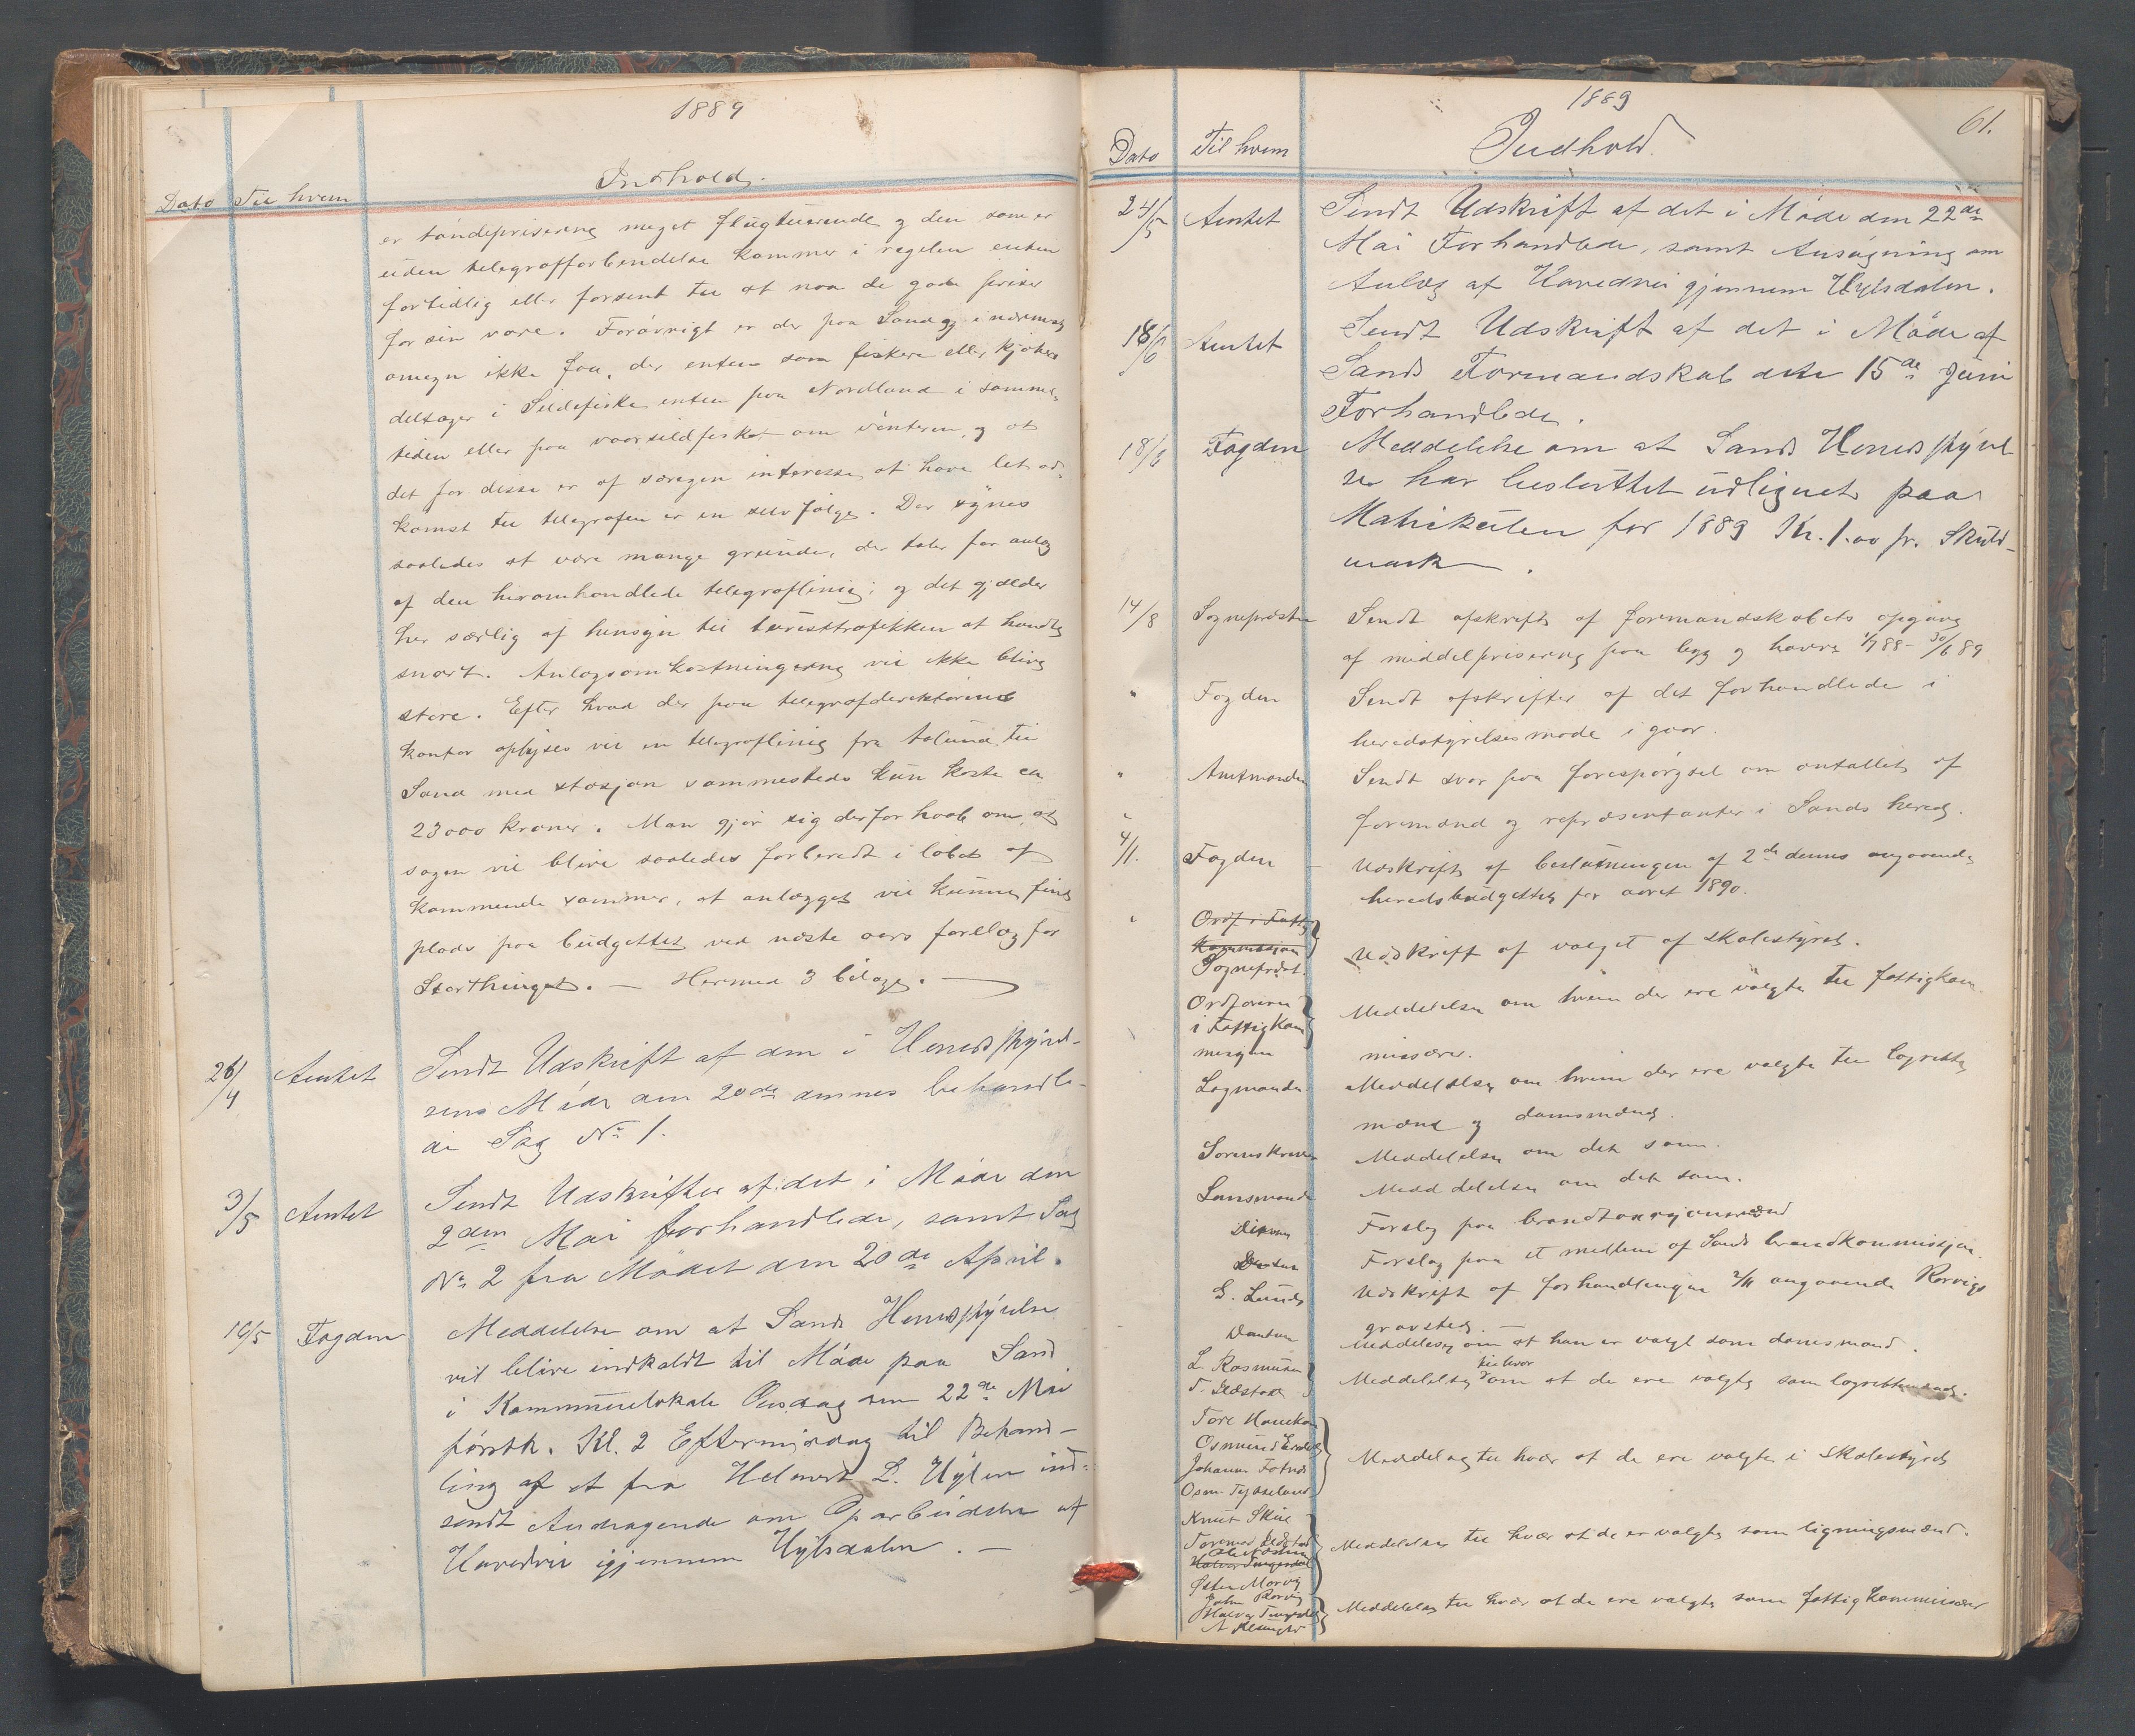 1889
Indhold.
Dato Til hvem
er töndepriserne meget flugtuerende og den som er
uden telegrafforbindelse kommer i regelen enten
fortidlig eller forsent til at naa de gode priser
for sin vare. Forövrigt er der paa Sand og i nærmeste
omegn ikke faa, der enten som fiskere eller kjöbere
deltager i Sildefiske enten paa Nordland i sommer-
tiden eller paa vaarsildfisket om vinteren, og at
det for disse er af særegen interesse at have let ad-
komst til telegrafen er en selvfölge. Der synes
saaledes at være mange grunde, der taler for anlæg
af den heromhandlede telegraflinie; og det gjælder
her særlig af hensyn til turisttrafikken at handle
snart. Anlægsomkostningerne vil ikke blive
store. Efter hvad der paa telegrafdirektörens
kontor oplyses vil en telegraflinie fra til
Sand med stasjon sammesteds kun koste ca
23000 kroner. Man gjör sig derfor haab om, at
sagen vil blive saaledes forberedt i löbet af
kommende sommer, at anlægget vil kunne finde
plads paa budgettet ved næste aars forelæg for
Storthinget. — Hermed 3 bilage. —
26/4 Amtet Sendt Udskrift af den i Heredsstyrel-
sens Möde den 20de dennes behandle-
de Sag No 1.
3/5 Amtet Sendt Udskrifter af det i Möde den
2den Mai forhandlede, samt Sag
No 2 fra Mödet den 20de April.
16/5 Fogden Meddelelse om at Sands Heredsstyrelse
vil blive indkaldt til Möde paa Sand
i Kommunelokale Onsdag den 22de Mai
förstk. Kl. 2 Eftermiddag til Behand-
ling af et fra Helmert L. Hylen ind-
sendt Andragende om Oparbeidelse af
Havedvei igjennem Hylsdalen. —
1889
61.
Dato Til hvem Indhold.
24/5 Amtet Sendt Udskrift af det i Möde den 22de
Mai Forhandlede, samt Ansögning om
Anlæg af Havedvei gjennem Hylsdalen.
18/6 Amtet Sendt Udskrift af det i Möde af
Sands Formandskab den 15de Juni
Forhandlede.
18/6 Fogden Meddelelse om at Sands Heredsstyrel
se har besluttet udlignet paa
Matrikulen for 1889 Kr. 1.00 pr. Skyld-
mark.
14/8 Sognepræsten Sendt afskrift af formandskabets opgave
af middelpriserne paa byg og havre 1/7 88 - 30/6 89
" Fogden Sendt afskrifter af det forhandlede i
heredstyrelsesmöde i gaar.
" Amtmanden Sendt svar paa forespörgsel om antallet af
formænd og repræsentanter i Sands hered.
4/11. Fogden Udskrift af beslutningen af 2de dennes angaaende
heredsbudgettet for aaret 1890.
" Ordf i Fattig
kommissjon
Sognepræst. Udskrift af valget af skolestyret.
Ordföreren
i Fattigkom
misjon Meddelelse om hvem der ere valgte til fattigkom
missærer.
Lagmanden Meddelelse om hvem der ere valgte til lagrettes
mænd og domsmænd.
Sorenskriver Meddelelse om det samme.
Lensmand Meddelelse om det samme.
Forslag paa brandtaxsjonsmænd
Forslag paa et medlem af Sands brandkommissjon.
E. Lunde Udskrift af forhandlingen 2/11 angaaende Rörvigs
gravsted. —
Meddelelse om at han er valgt som domsmand.
L. Rasmussen
Meddelelse til hver om at de ere valgte som lagrettemænd.
Tore
Osmund
Johannes
Osm. Meddelelse til hver at de ere valgte i Skolestyret
Knut Skiie
Meddelelse til hver at de er valgte som ligningsmænd.
Halvor Tengesdal
John Rörvig
Halvor Tengesdal
Meddelelse til hver at de ere valgte som fattigkommissærer